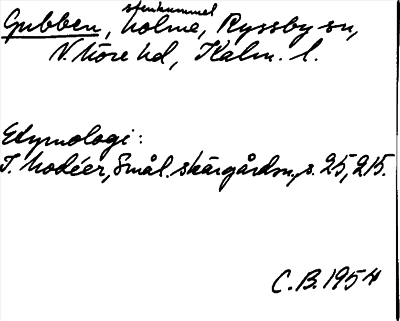 stenkummel
Gubben, holme, Ryssby sn,
N. Möre hd, Kalm. l.
Etymologi:
I. Modéer, Smål. skärgårdsn., s. 25, 215.
C.B. 1954